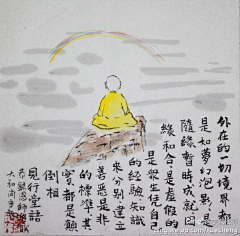 外在的一切境界都
是如夢幻泡影是
隨緣暫時成就因
緣和合是虛假的
是眾生凭自己
的經驗知識
來分別建立
善惡是非
的標準其
實都是顛
倒相
見行堂語
恭錄恩師
大和尚